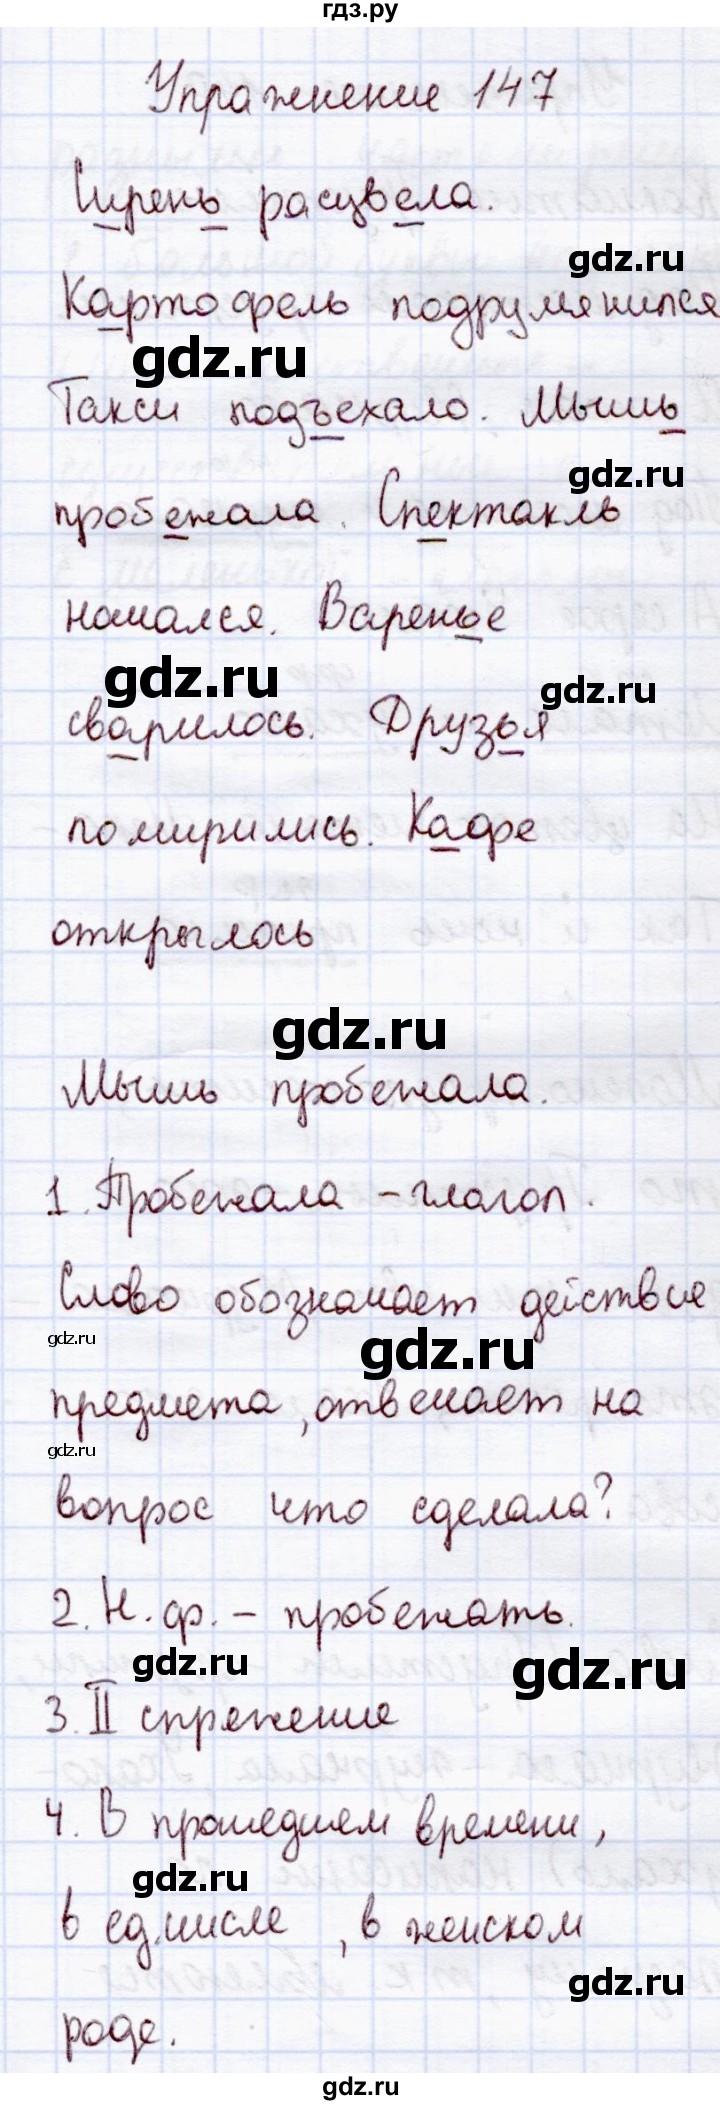 гдз.ру
Упражнение 147
Сирень расцвела.
gdz.ru
Картофель подрумянился
gdz.ru
Такси подъехало. Мышь
gdz.ru
пробежала. Спектакль
начался. Варенье
gdz.ru
gdz.ru
сварилось. Друзья
помирились. Кафе
открылось
gdz.ru
Мышь пробежала.
1. Пробежала - глагол.
Слово обозначает действие
gdz.ru
gdz.ru
предмета, отвечает на
gdz.ru
вопрос что сделала?
2. Н.ф. - пробежать.
gdz.ru
gdz.ru
3. II спряжение
4. В прошедшем времени,
gdz.ru
в ед.числе, в женском
gdz.ru
роде.
gdz.ru